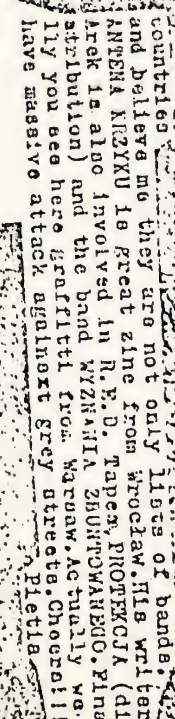 countries
and believe me they are not only lists of bands.
ANTENA KRZYKU is great zine from Wrocław.His writer
Arek is also involved in R.E.D. Tapes,PROTEKCJA (di
stribution) and the band WYZNANIA ZBUNTOWANEGO.Fina
lly you see here graffitti from Warsaw.Actually we
have massive attack againsxt grey streets.Cheers!!
Pietia